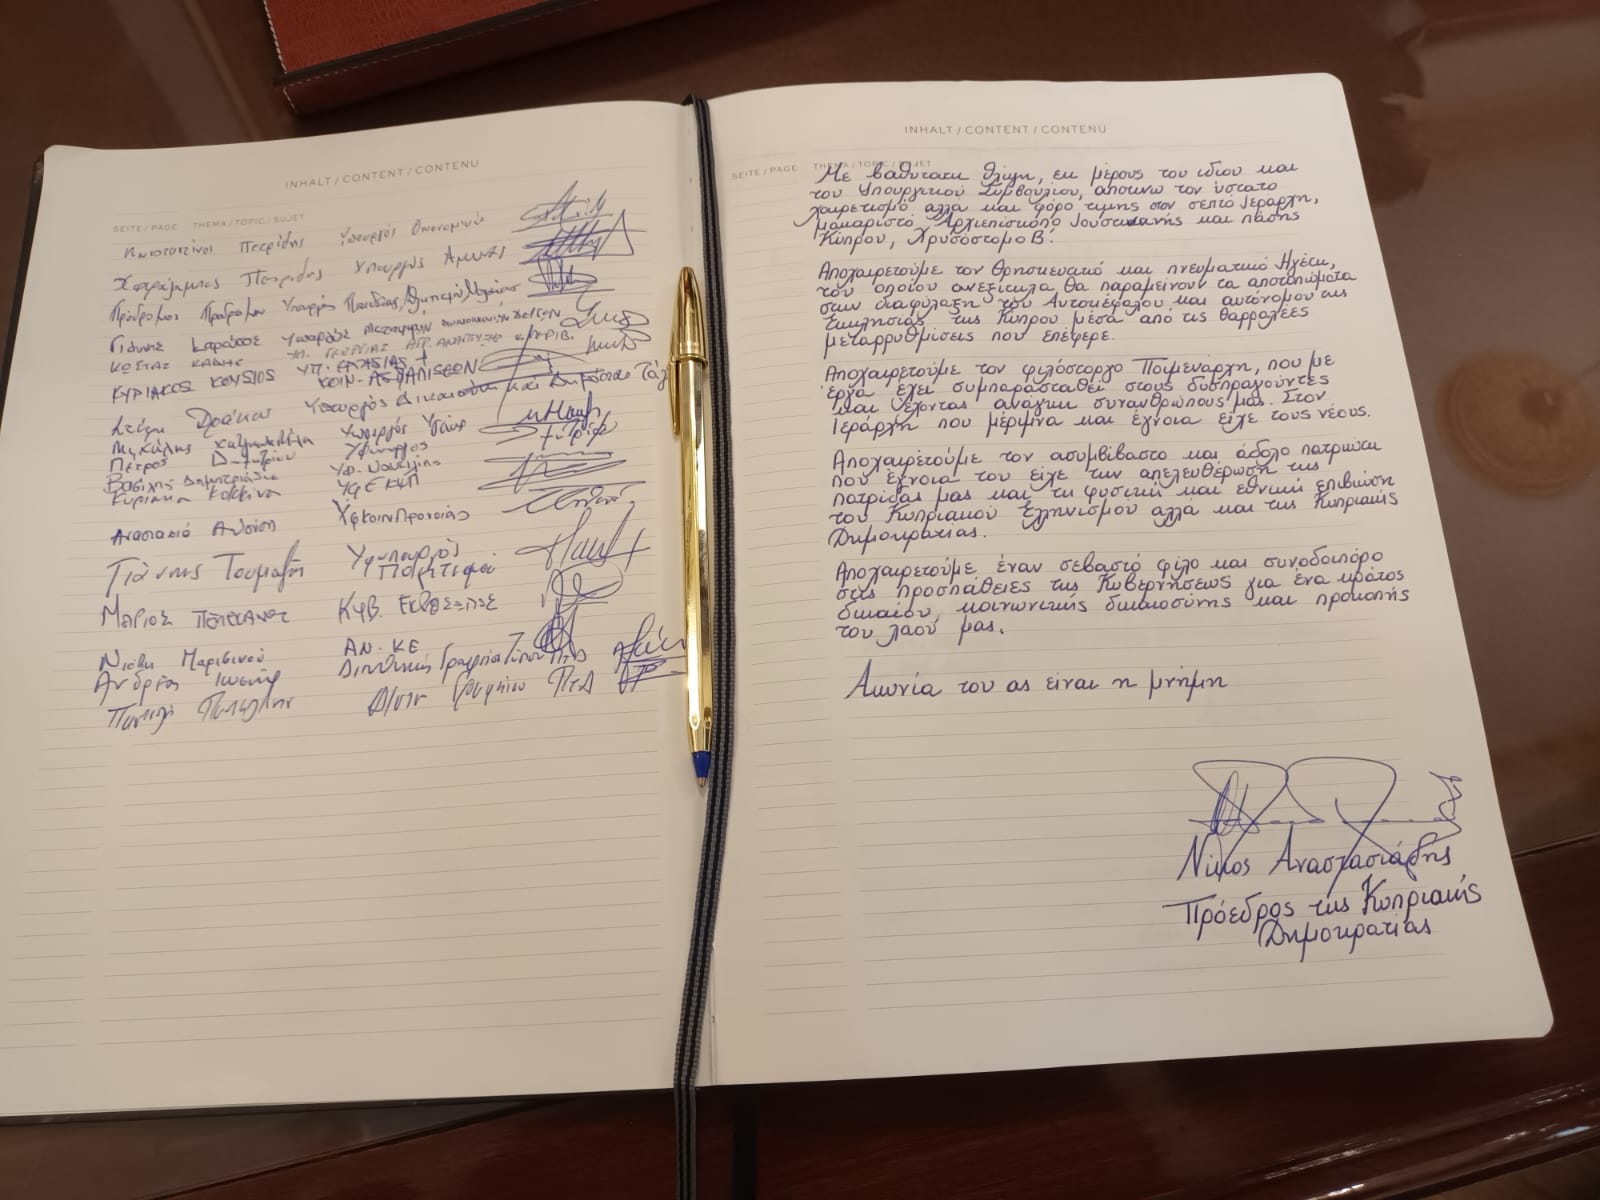 INHALT / CONTENT / CONTENU
SEITE / PAGE THEMA / TOPIC / SUJET
Κωνσταντίνος Πετρίδης Υπουργός Οικονομικών
Χαράλαμπος Πετρίδης Υπουργός Άμυνας
Πρόδρομος Προδρόμου Υπουργός Παιδείας,
Γιάννης Καρούσος Υπουργός Μεταφορών Επικοινωνιών και Έργων
ΚΩΣΤΑΣ ΚΑΔΗΣ ΥΠ. ΓΕΩΡΓΙΑΣ ΑΓΡ. ΑΝΑΠΤΥΞΗΣ & ΠΕΡΙΒ.
ΚΥΡΙΑΚΟΣ ΚΟΥΣΙΟΣ ΥΠ. ΕΡΓΑΣΙΑΣ +
ΚΟΙΝ. ΑΣΦΑΛΙΣΕΩΝ
Στέφη Δράκου Υπουργός Δικαιοσύνης και Δημόσιας Τάξ
Μιχάλης Χατζηπαντέλα Υπουργός Υγείας
Πέτρος Δημητρίου Υφυπουργός
Βασίλης Δημητριάδης Υφ. Ναυτιλίας
Κυριάκος Κόκκινος ΥφΕΚΨΠ
Αναστασία Ανθούση Υφ Κοιν Προνοίας
Γιάννης Τουμαζή Υφυπουργός
Πολιτισμού
Μάριος Πελεκάνος ΚΥΒ. ΕΚΠΡΟΣΩΠΟΣ
Νιόβη Παρισινού ΑΝ. ΚΕ
Ανδρέας Ιωσήφ Διευθυντής Γραφείου Τύπου ΠτΔ
Παντελή Παντελίδης Δ/ντης Γραφείου ΠτΔ
INHALT / CONTENT / CONTENU
SEITE / PAGE THEMA / TOPIC / SUJET
Με βαθύτατη θλίψη, εκ μέρους του ιδίου και
του Υπουργικού Συμβουλίου, αποτίνω τον ύστατο
χαιρετισμό αλλά και φόρο τιμής στον σεπτό Ιεράρχη,
μακαριστό Αρχιεπίσκοπο Ιουστινιανής και πάσης
Κύπρου, Χρυσόστομο Β'.
Αποχαιρετούμε τον θρησκευτικό και πνευματικό Ηγέτη,
του οποίου ανεξίτηλα θα παραμείνουν τα αποτυπώματα
στην διαφύλαξη του Αυτοκέφαλου και αυτόνομου της
Εκκλησίας της Κύπρου μέσα από τις θαρραλέες
μεταρρυθμίσεις που επέφερε.
Αποχαιρετούμε τον φιλόστοργο Ποιμενάρχη, που με
έργα έχει συμπαρασταθεί στους δυσπραγούντες
και έχοντας ανάγκη συνανθρώπους μας. Στον
Ιεράρχη που μέριμνα και έγνοια είχε τους νέους.
Αποχαιρετούμε τον ασυμβίβαστο και άδολο πατριώτη
που έγνοια του είχε την απελευθέρωση της
πατρίδας μας και τη φυσική και εθνική επιβίωση
του Κυπριακού Ελληνισμού αλλά και της Κυπριακής
Δημοκρατίας.
Αποχαιρετούμε έναν σεβαστό φίλο και συνοδοιπόρο
στις προσπάθειες της Κυβερνήσεως για ένα κράτος
δικαίου, κοινωνικής δικαιοσύνης και προκοπής
του λαού μας.
Αιωνία του ας είναι η μνήμη
Νίκος Αναστασιάδης
Πρόεδρος της Κυπριακής
Δημοκρατίας